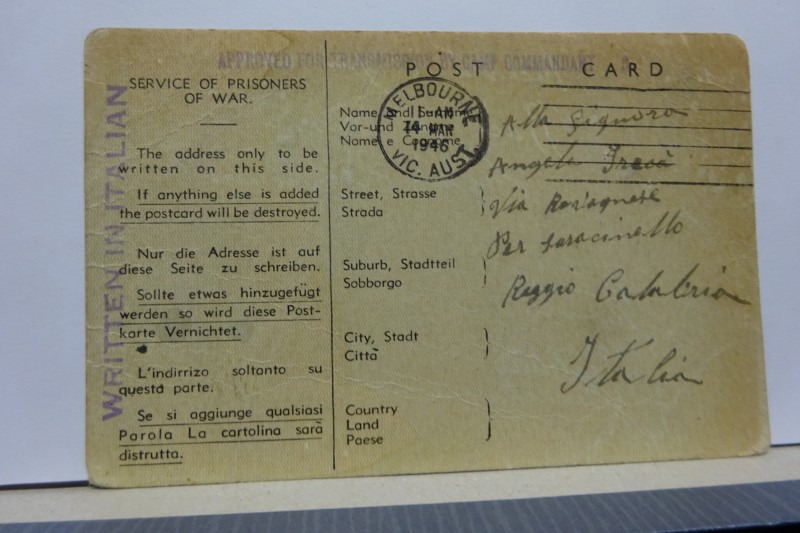 APPROVED FOR TRANSMISSION BY CAMP COMMANDANT
POST CARD
WRITTEN IN ITALIAN
SERVICE OF PRISONERS
OF WAR.
The address only to be
written on this side.
If anything else is added
the postcard will be destroyed.
Nur die Adresse ist auf
diese Seite zu schreiben.
Sollte etwas hinzugefügt
werden so wird diese Post-
karte Vernichtet.
L'indirrizo soltanto su
questa parte.
Se si aggiunge qualsiasi
Parola La cartolina sarà
distrutta.
MELBOURNE
11 AM
14 MAR
1946
VIC. AUST.
Name and
Vor-und
Nome e Cognome
Street, Strasse
Strada
Suburb, Stadtteil
Sobborgo
City, Stadt
Città
Country
Land
Paese
Alla Signora
Angela
Via
Per Saracinello
Reggio Calabria
Italia